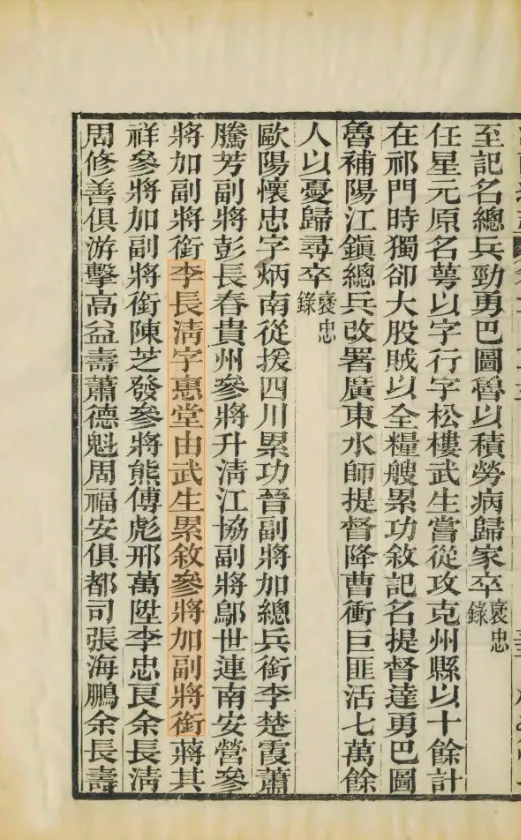 至記名總兵勁勇巴圖魯以積勞病歸家卒褒忠錄
任星元原名蕚以字行字松樓武生嘗從攻克州縣以十餘計
在祁門時獨卻大股賊以全糧艘累功敘記名提督達勇巴圖
魯補陽江鎭總兵改署廣東水師提督降曹衝巨匪活七萬餘
人以憂歸尋卒褒忠錄
歐陽懷忠字炳南從援四川累功晉副將加總兵銜李楚霞蕭
騰芳副將彭長春貴州參將升淸江協副將鄔世連南安營參
將加副將銜李長淸字惠堂由武生累敘參將加副將銜蔣其
祥參將加副將銜陳芝發參將熊傅彪邢萬陞李忠良余長淸
周修善俱游擊高益壽蕭德魁周福安俱都司張海鵬余長壽